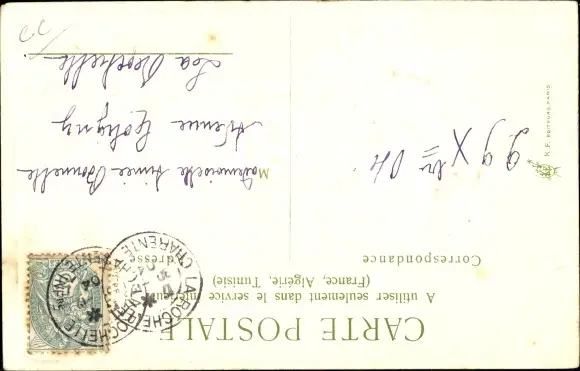 CARTE POSTALE
A utiliser seulement dans le service intérieur
(France, Algérie, Tunisie)
Correspondance
Adresse
9 9 X bre 04
Mademoiselle Aimée Bonnelle
Avenue Coligny
La Rochelle
K.F. EDITEURS, PARIS
LA ROCHELLE
CHARENTE INFRE